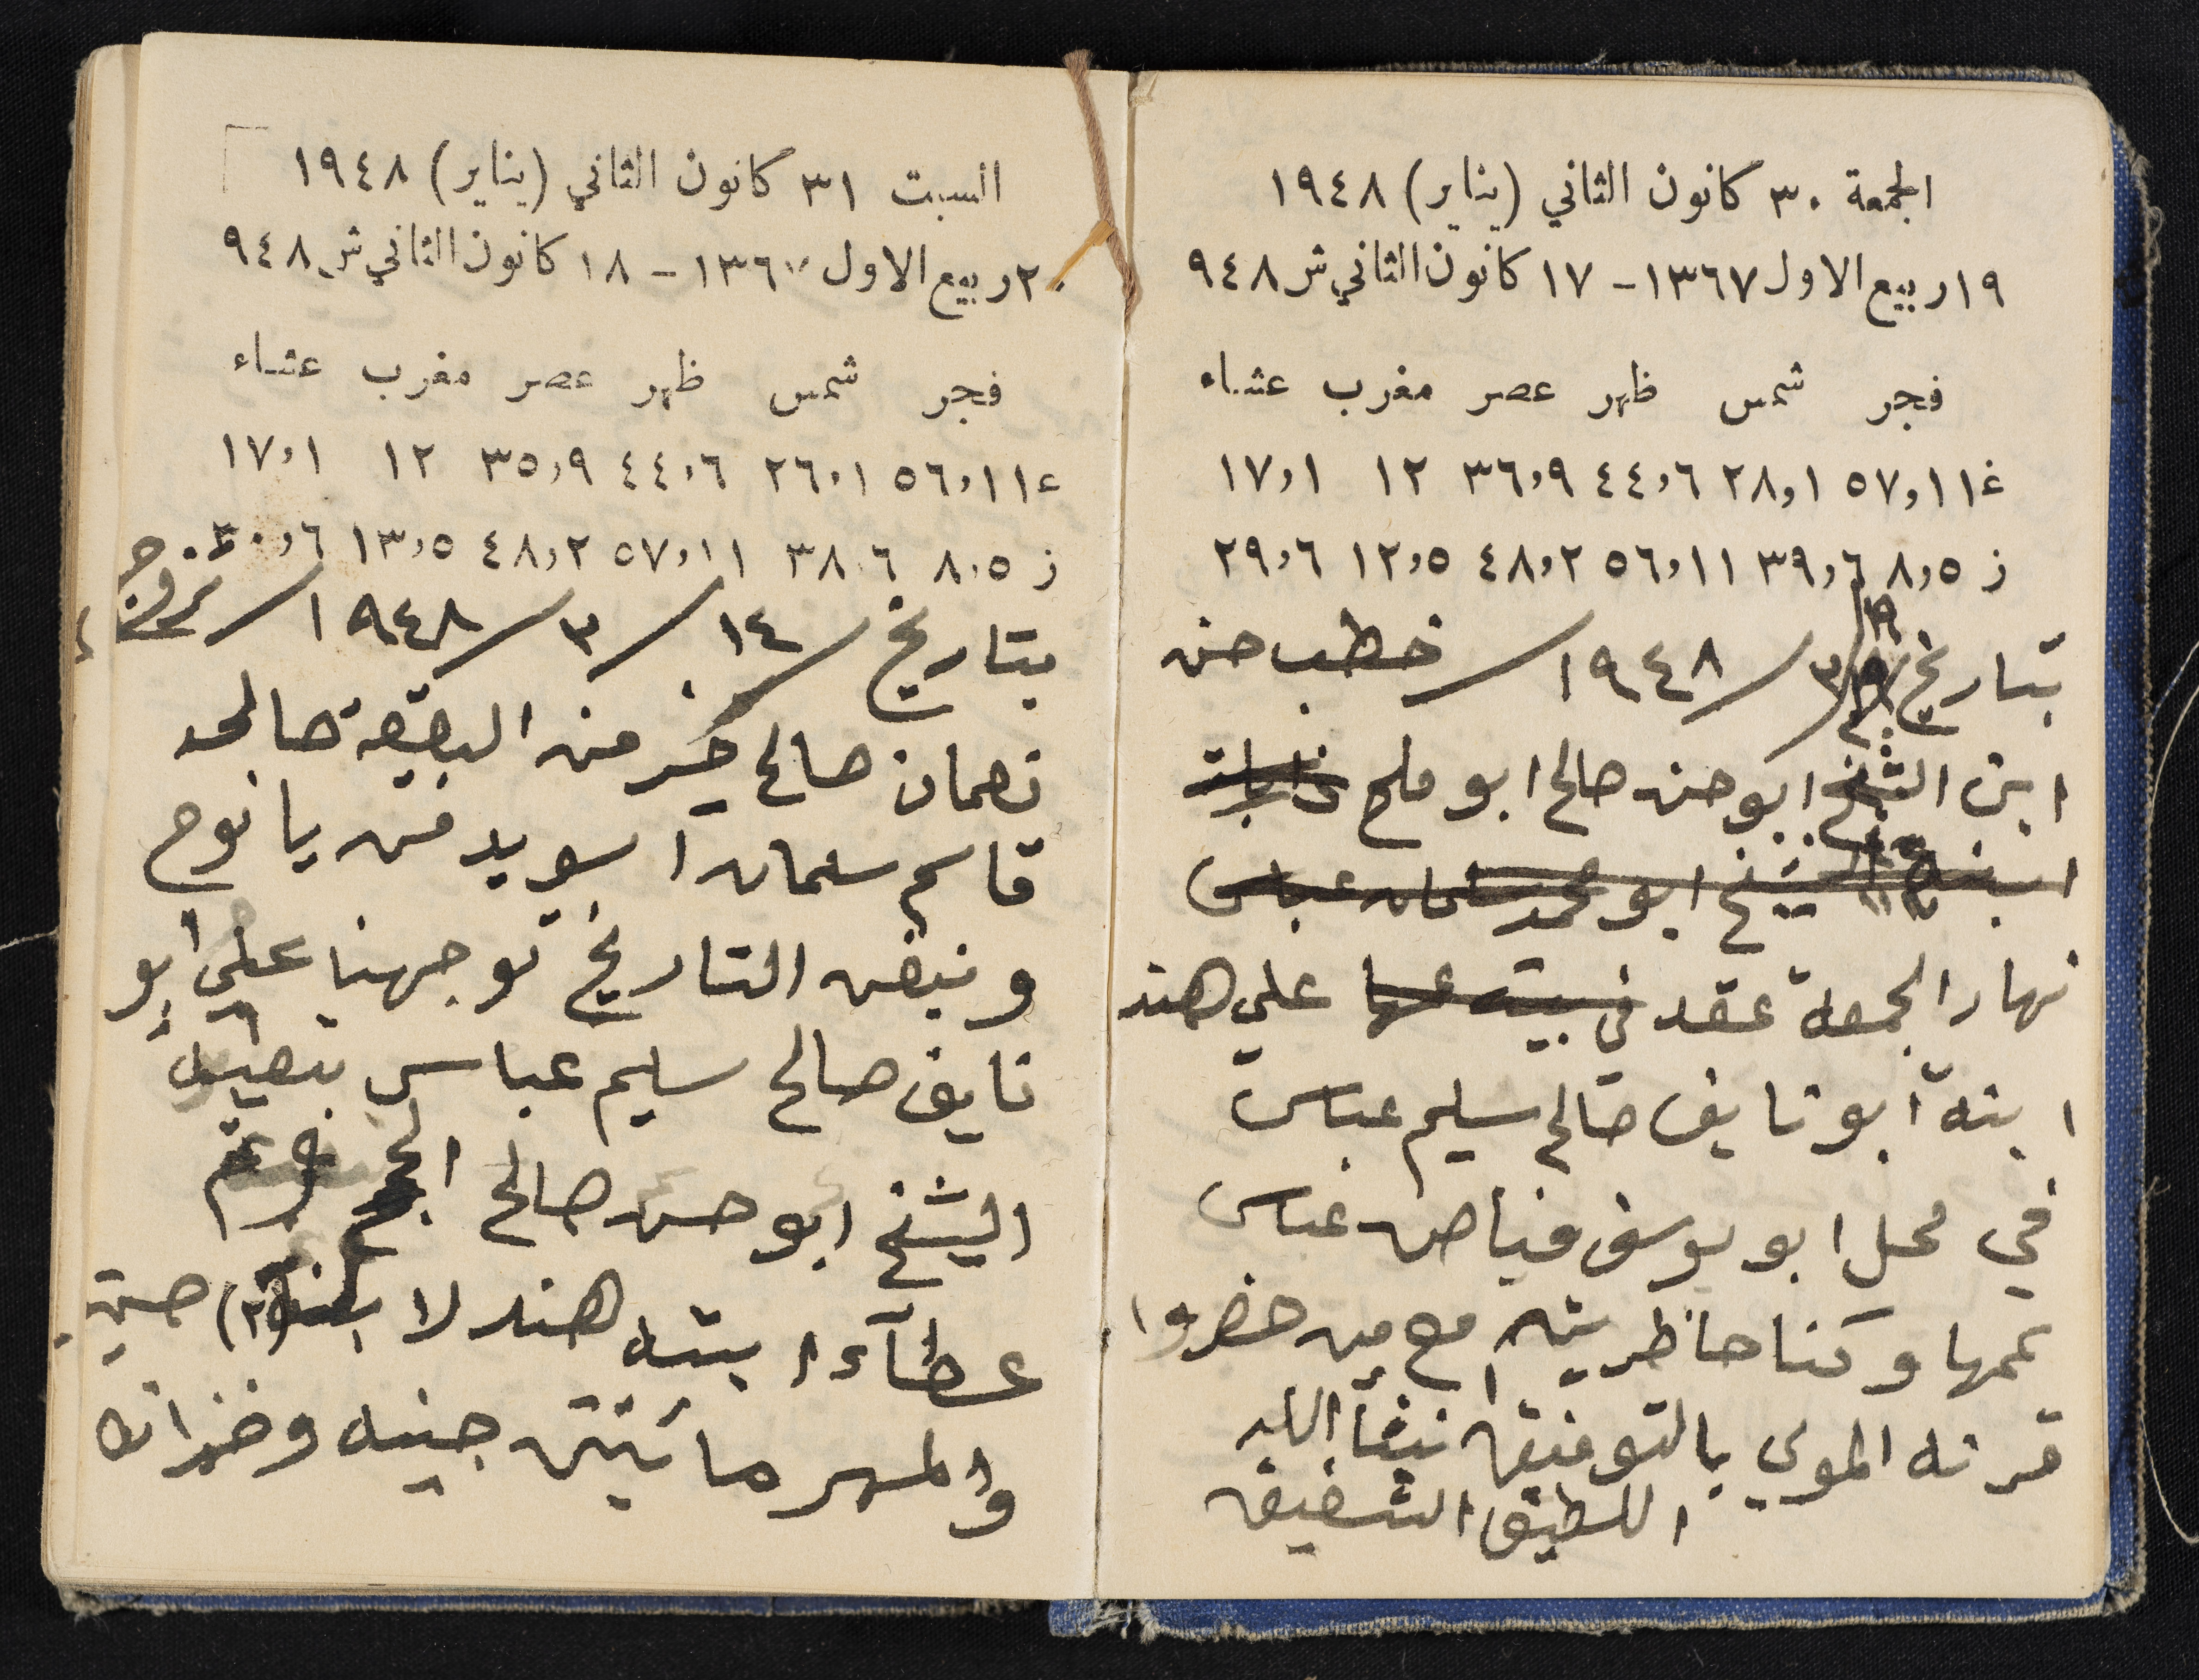 الجمعة ٣٠ كانون الثاني (يناير) ١٩٤٨
١٩ ربيع الاول ١٣٦٧ - ١٧ كانون الثاني ش ٩٤٨
فجر شمس ظهر عصر مغرب عشاء
غ ١١,٥٧ ١,٢٨ ٦,٤٤ ٩,٣٦ ١٢ ١,١٧
ز ٥,٨ ٦,٣٩ ١١,٥٦ ٢,٤٨ ٥,١٢ ٦,٢٩
بتاريخ ١٩/٣/١٩٤٨ خطب حسن
ابن الشيخ ابو حسن صالح ابو ملح
ابنة الشيخ ابو محمد سلمان عباس
نهار الجمعة عقد في بيت عمها على هند
ابنة ابو نايف صالح سليم عباس
في محل ابو يوسف فياض عباس
عمها وكنا حاظرين مع من حضروا
قرنه المولى بالتوفيق انشأ الله
اللطيف الشفيق
السبت ٣١ كانون الثاني (يناير) ١٩٤٨
٢٠ ربيع الاول ١٣٦٧ - ١٨ كانون الثاني ش ٩٤٨
فجر شمس ظهر عصر مغرب عشاء
غ ١١,٥٦ ١,٢٦ ٦,٤٤ ٩,٣٥ ١٢ ١,١٧
ز ٥,٨ ٦,٣٨ ١١,٥٧ ٢,٤٨ ٥,١٣ ٦,٣٠
بتاريخ ١٤/٣/١٩٤٨ تزوج
نعمان صالح خير من البقيعة
قاسم سلمان اسويد من يانوح
وبنفس التاريخ توجهنا على ابو
نايف صالح سليم عباس
الشيخ ابو حسن صالح
عطآء ابنته هند لا بنه (٢) حسن
والمهر مائتين جنيه وخزانه